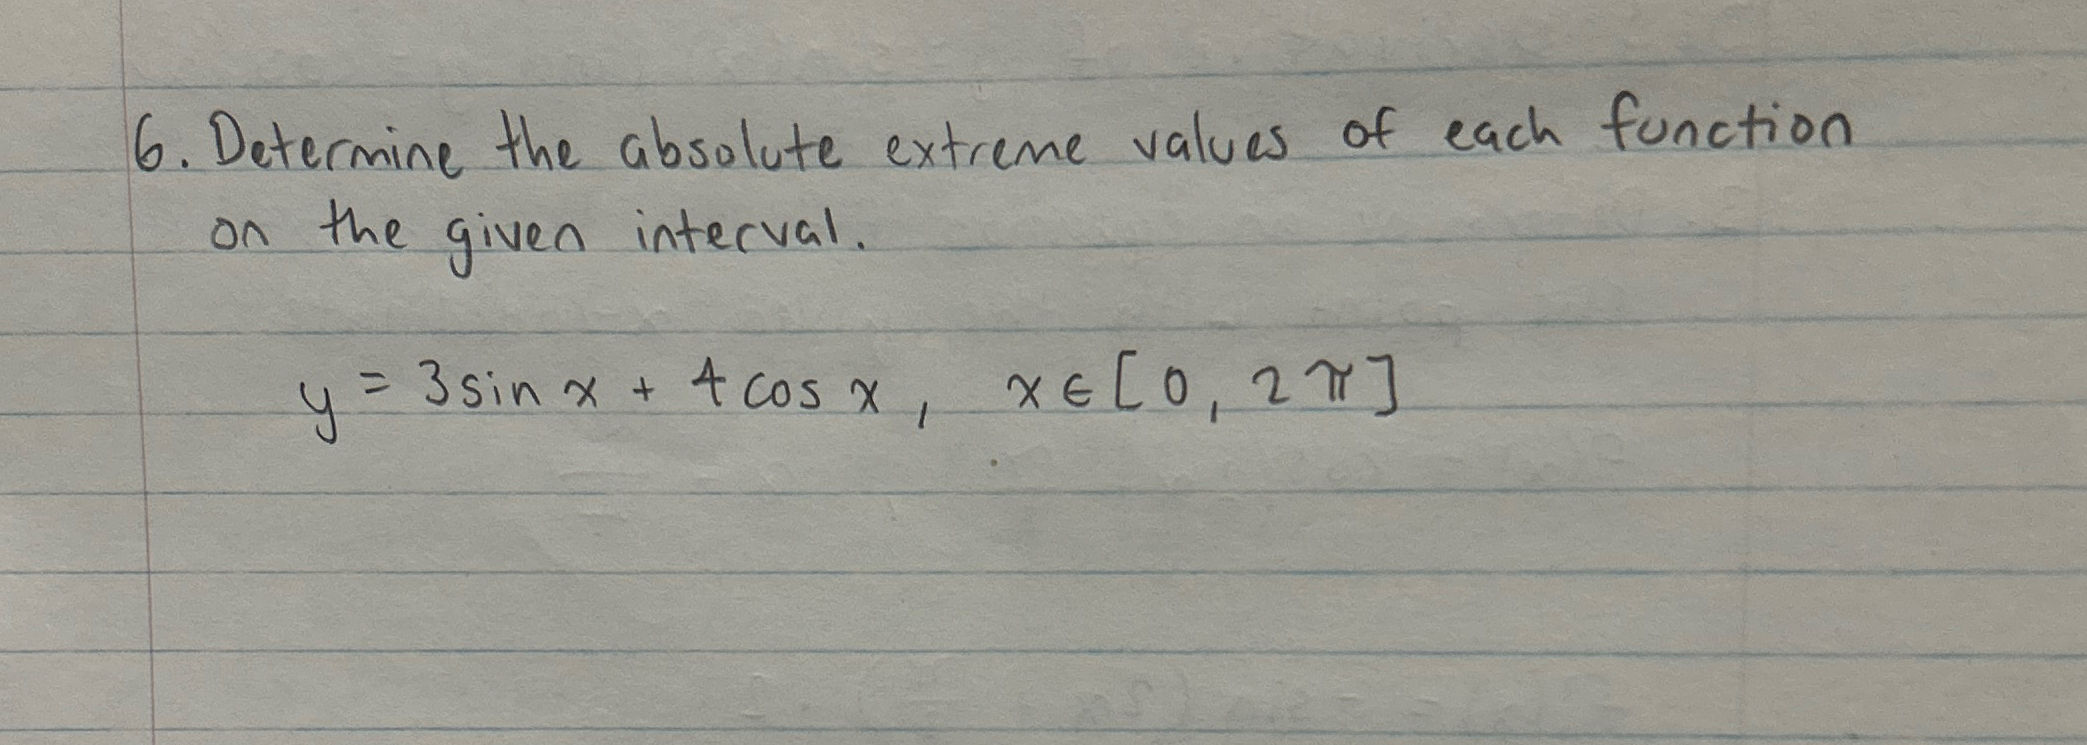 6. Determine the absolute extreme values of each function
on the given interval.
y = 3 sin x + 4 cos x, x ∈ [0, 2π]